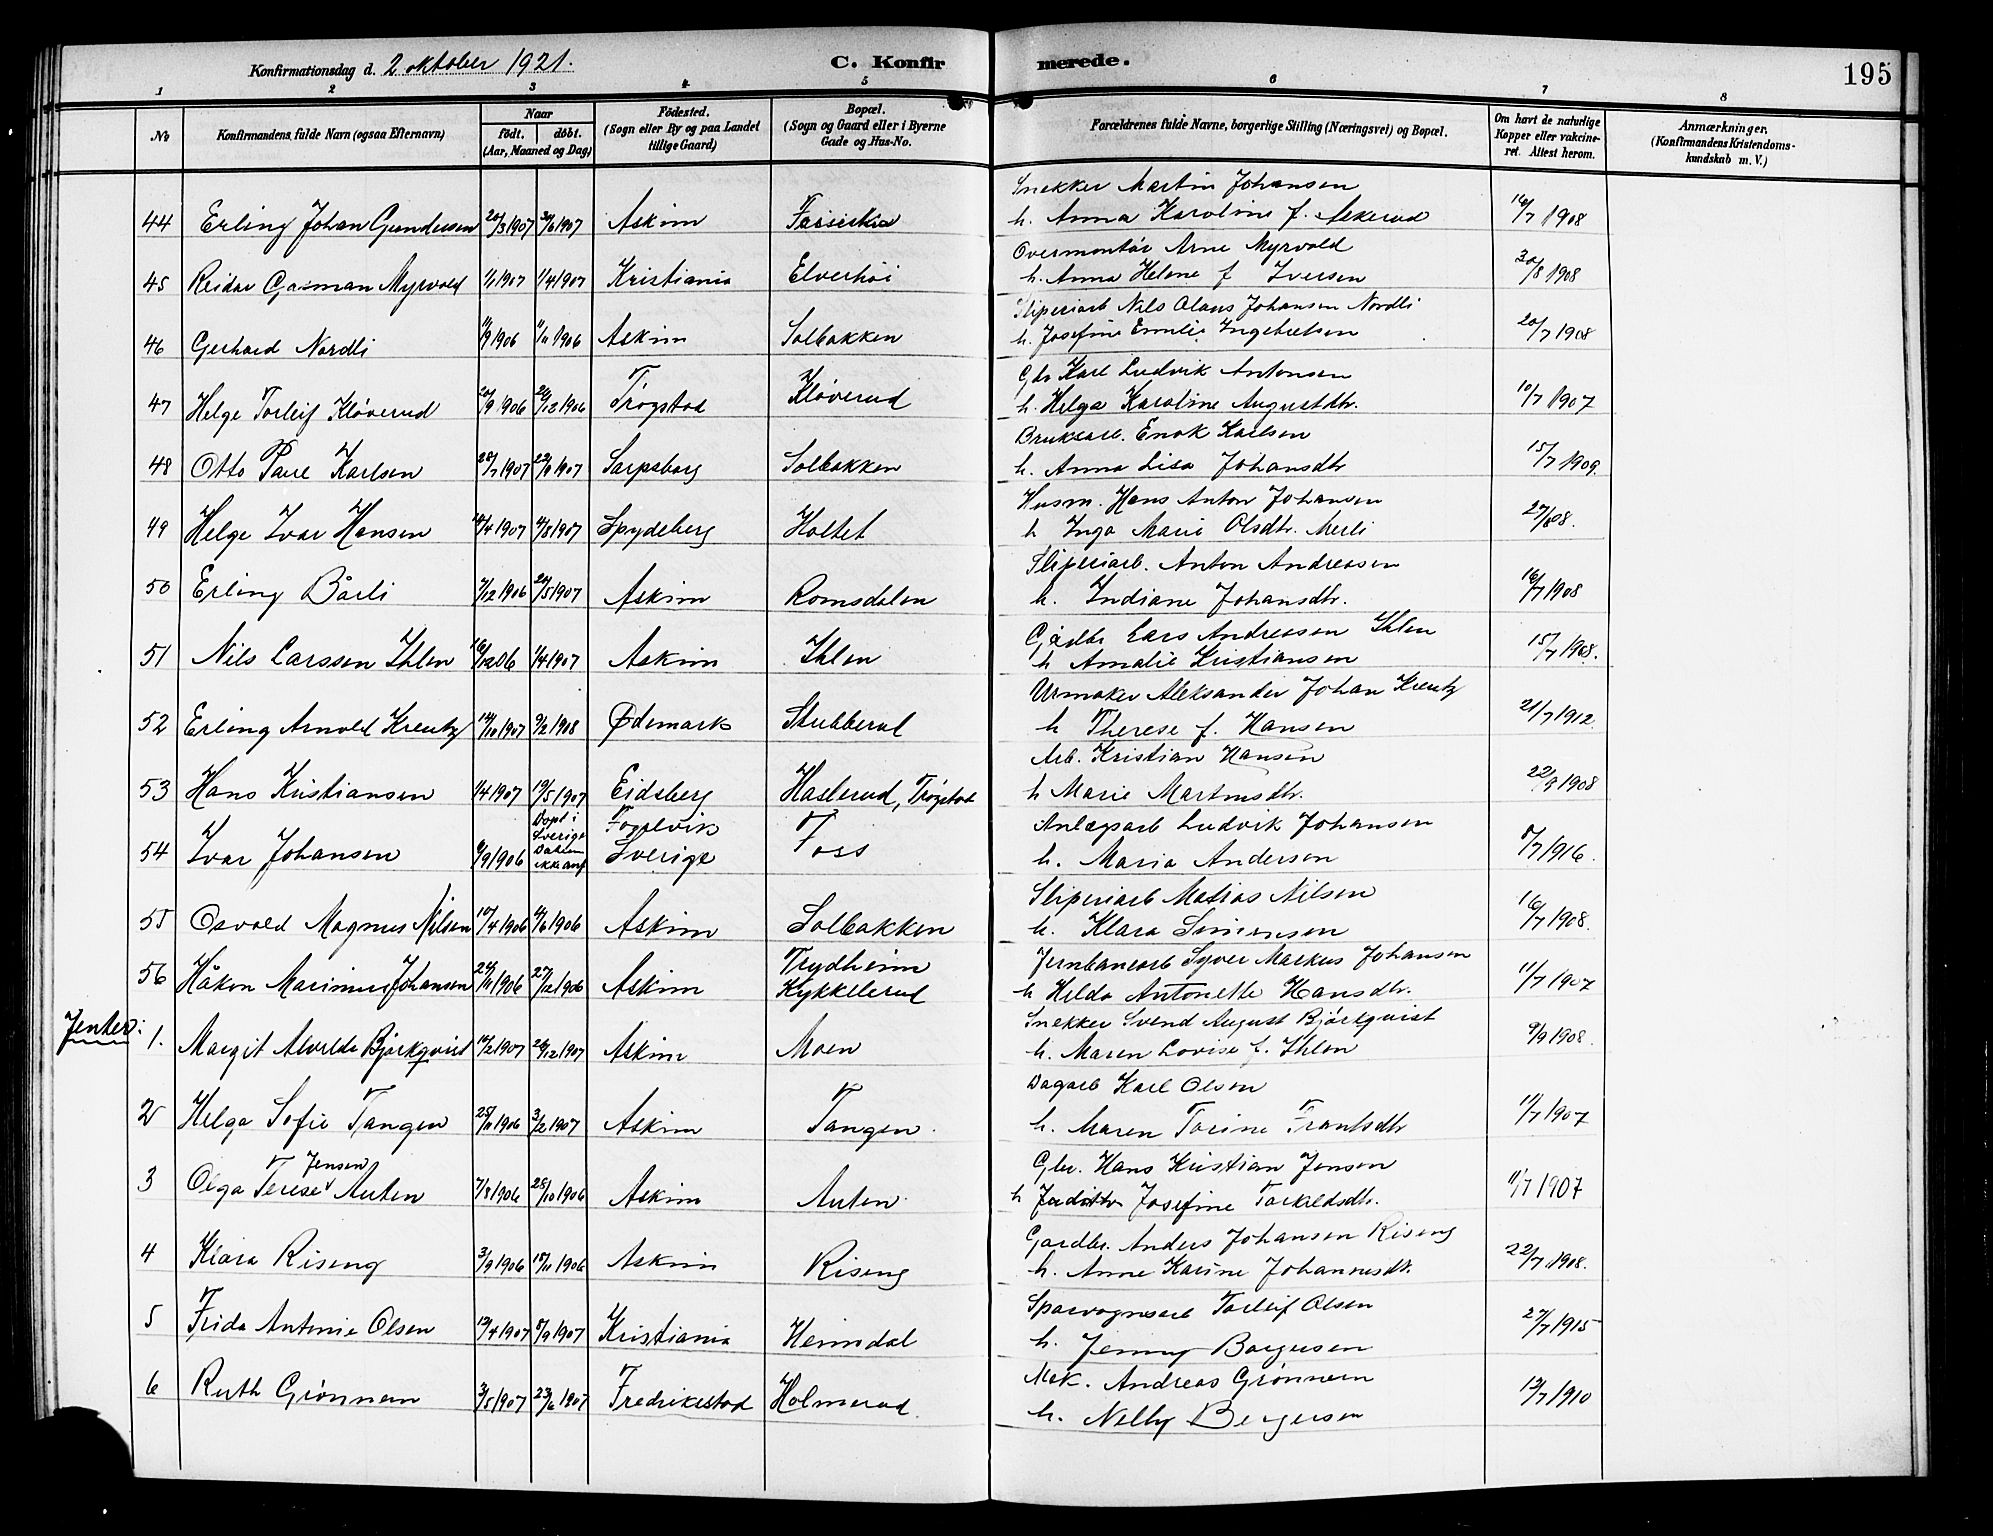 Konfirmationsdag d. 2 oktober 1921.
C. Konfirmerede.
195
1 2 3 4 5 6 7 8
No Konfirmandens fulde Navn (ogsaa Efternavn) Naar født. døbt. (Aar, Maaned og Dag) Fødested. (Sogn eller By og paa Landet tillige Gaard) Bopæl. (Sogn og Gaard eller i Byerne Gade og Hus-No. Forældrenes fulde Navne, borgerlige Stilling (Næringsvei) og Bopæl. Om havt de naturlige Kopper eller vakcineret. Attest herom. Anmærkninger. (Konfirmandens Kristendomskundskab m. V.)
Snekker Martin Johansen
44 Erling Johan Gundersen 20/3 1907 30/6 1907 Askim h. Anna Karoline f. Askerud 16/7 1908
Overmontør Arne Myrvold
45 Reidar Gasman Myrvold 1/1 1907 1/4 1907 Kristiania Elverhøi h. Anna Helene f Iversen 30/8 1908
Sliperiarb Nils Olaus Johansen Nordli
46 Gerhard Nordli 11/9 1906 11/11 1906 Askim Solbakken h. Josefine Emilie Ingebretsen 20/7 1908
Gbr Karl Ludvik Antonsen
47 Helge Torleif Kløverud 20/9 1906 26/12 1906 Trøgstad Kløverud h. Helga Karoline Augustdtr. 10/7 1907
Bruksarb. Enok Karlsen
48 Otto Paul Karlsen 1907 1907 Sarpsborg Solbakken h. Anna Lisa Johansdtr 15/7 1909.
Husm. Hans Anton Johansen
49 Helge Ivar Hansen 1907 1907 Spydeberg Holtet h Inga Marie Olsdtr. Merli 27/8 08.
Sliperiarb. Anton Andreasen
50 Erling Bårli 7/12 1906 20/5 1907 Askim Romsdalen h. Indiane Johansdtr. 16/7 1908
Gårdbr Lars Andreasen Ihlen
51 Nils Larssen Ihlen 16/12 06 1/4 1907 Askim Ihlen h Amalie Kristiansen 15/7 1908.
Urmaker Aleksander Johan Kreutz
52 Erling Arnold Kreutz 14/10 1907 9/2 1908 Ødemark Stubberud h Therese f. Hansen 21/7 1912.
Arb. Kristian Hansen
53 Hans Kristiansen 1/4 1907 19/5 1907 Eidsberg Haslerud, Trøgstad h Marie Martinsdtr. 22/9 1908
Døpt i Sverige Datum ikke anf
Anlægsarb Ludvik Johansen
54 Ivar Johansen 1906 Sverige Foss h. Maria Anderson 8/7 1916.
Sliperiarb Matias Nilsen
55 Osvald Magnus Nilsen 10/4 1906 4/6 1906 Askim Solbakken h. Klara Simensen 16/7 1908.
Jernbanearb Syver Markus Johansen
56 Håkon Marinius Johansen 24/11 1906 27/12 1906 Askim Trydheim Kykkelsrud h Hilda Antonette Hansdtr. 11/7 1907
Jenter:
Snekker Svend August Bjørkqvist
1. Margit Alvilde Bjørkqvist 14/2 1907 26/12 1907 Askim Moen h. Maren Lovise f. Ihlen 9/9 1908.
Dagarb Karl Olsen
2 Helga Sofie Tangen 25/11 1906 3/2 1907 Askim Tangen. h. Maren Torine Frantsdtr 11/7 1907
Jensen
Gbr. Hans Kristian Jensen
3 Olga Terese Auten 7/8 1906 28/10 1906 Askim Auten h Judithe Josefine Torkeldsdtr. 11/7 1907
Gardbr. Anders Johansen Riseng
4 Klara Riseng 3/9 1906 18/11 1906 Askim Riseng h. Anne Karine Johannesdtr. 22/7 1908.
Sporvognsarb Torleif Olsen
5 Frida Antonie Olsen 1907 1907 Kristiania Heimdal h. Jenny Borgersen 27/7 1915
Mek. Andreas Grønnern
6 Ruth Grønnern 3/5 1907 23/6 1907 Fredrikstad Holmerud. h. Nelly Bergersen 1910